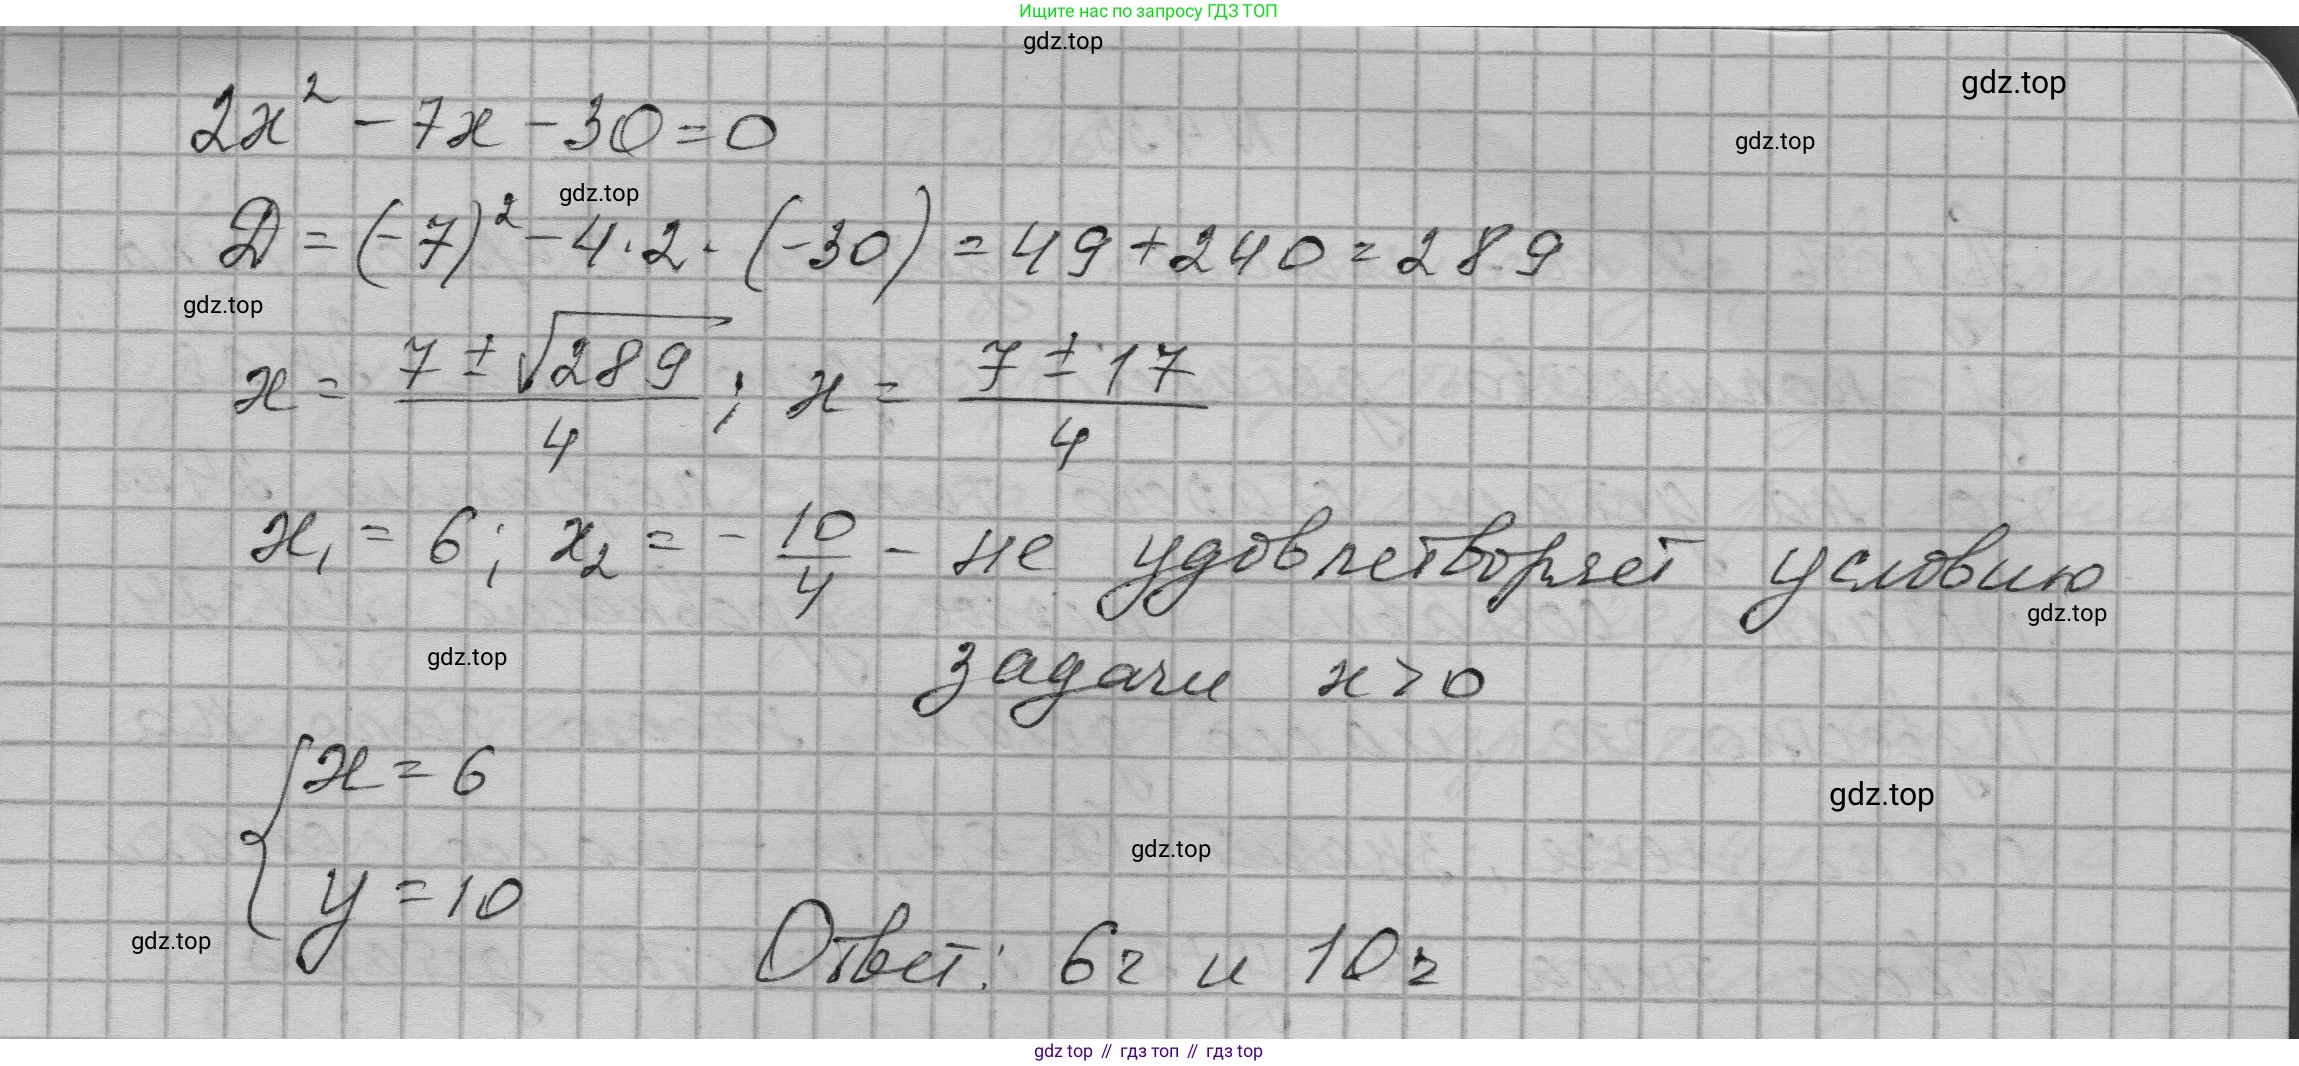 Ищите нас по запросу ГДЗ ТОП
gdz.top
gdz.top
2x² - 7x - 30 = 0
gdz.top
gdz.top
D = (-7)² - 4·2·(-30) = 49 + 240 = 289
gdz.top
x = (7 ± √289)/4 ; x = (7 ± 17)/4
x₁ = 6; x₂ = - 10/4 - не удовлетворяет условию
gdz.top
gdz.top
задачи x > 0
{ x = 6
gdz.top
gdz.top
y = 10
gdz.top
Ответ: 6г и 10г
gdz top // гдз топ // гдз top